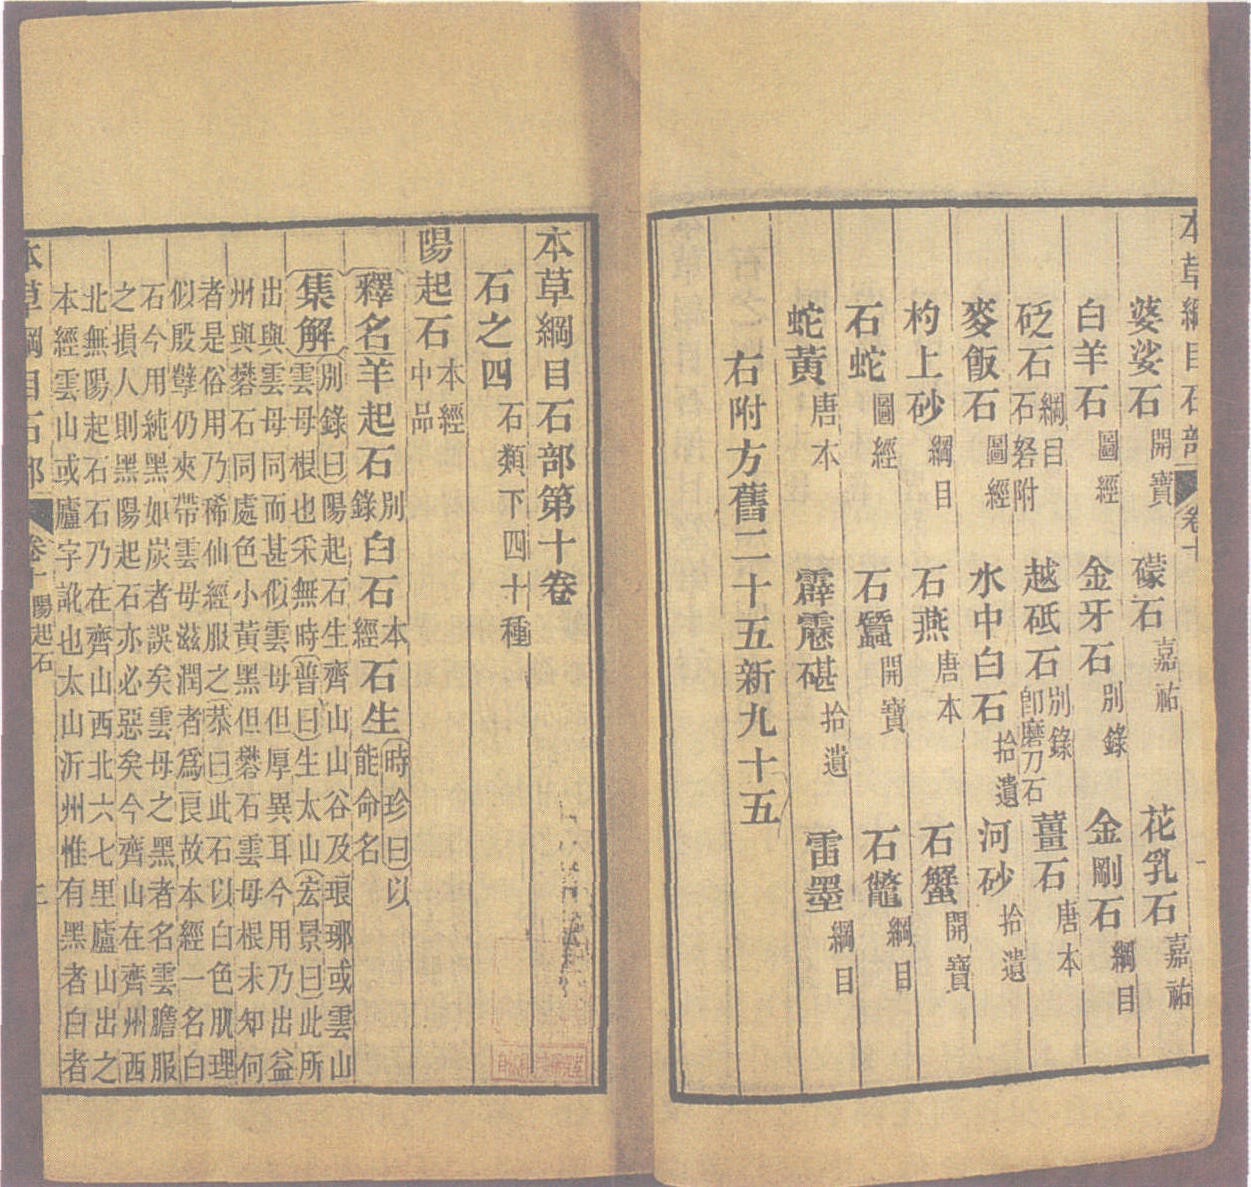 本草綱目石部 卷十 一
婆娑石 開寶 礞石 嘉祐 花乳石 嘉祐
白羊石 圖經 金牙石 別錄 金剛石 綱目
砭石 綱目 石砮附 越砥石 別錄 卽磨刀石 薑石 唐本
麥飯石 圖經 水中白石 拾遺 河砂 拾遺
杓上砂 綱目 石燕 唐本 石蟹 開寶
石蛇 圖經 石蠶 開寶 石鼈 綱目
蛇黃 唐本 霹靂碪 拾遺 雷墨 綱目
右附方舊二十五新九十五
本草綱目石部第十卷
石之四 石類下四十種
陽起石 本經中品
釋名羊起石 別錄 白石 本經 石生 時珍曰以能命名
集解 別錄曰陽起石生齊山山谷及琅琊或雲山
雲母根也采無時普曰生太山宏景曰此所
出與雲母同而甚似雲母但厚異耳今用乃出益
州與礬石同處色小黃黑但礬石雲母根未知何
者是俗用乃稀仙經服之恭曰此石以白色肌理
似殷孽仍夾帶雲母滋潤者爲良故本經一名白
石今用純黑如炭者誤矣雲母之黑者名雲膽服
之損人則黑陽起石亦必惡矣今齊山在齊州西
北無陽起石石乃在齊山西北六七里廬山出之
本經雲山或廬字訛也太山沂州惟有黑者白者
本草綱目石部 卷十 陽起石 二